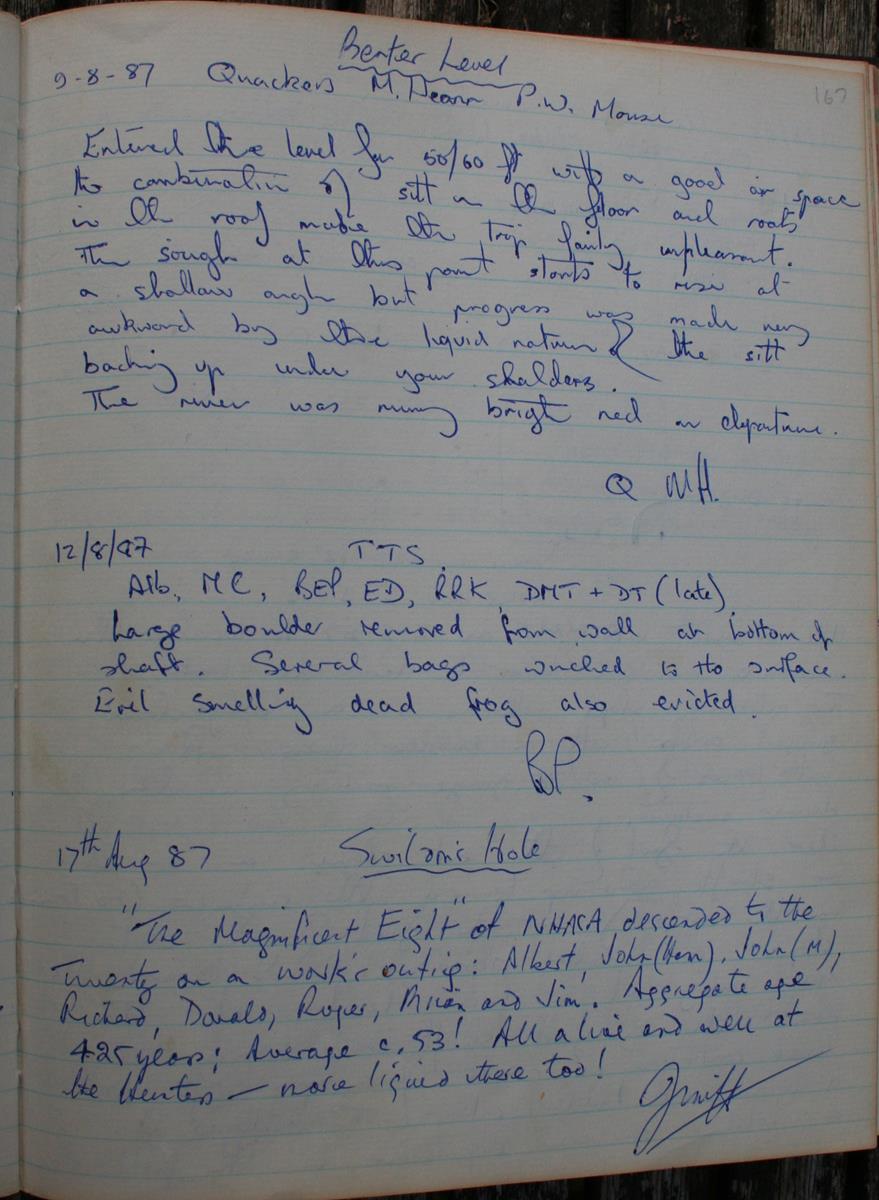 Benter Level
167
9-8-87 Quackers M. Hearn P.W. Mouse
Entered the level for 50/60 ft with a good air space
the combination of silt on the floor and roots
in the roof make the trip fairly unpleasant.
The sough at this point starts to rise at
a shallow angle but progress was made very
awkward by the liquid nature of the silt
backing up under your sholders.
The river was runny bright red on departure.
Q MH.
12/8/87 TTS
Alb, MC, BEP, ED, RRK, DMT + DT (late).
Large boulder removed from wall at bottom of
shaft. Several bags winched to the surface.
Evil smelling dead frog also evicted.
BP.
17th Aug 87 Swildon's Hole
"The Magnificent Eight" of NHASA descended to the
Twenty on a work's outing: Albert, John (Hem), John (M),
Richard, Donald, Roger, Brian and Jim. Aggregate age
425 years; Average c. 53! All alive and well at
the Hunters — more liquid there too!